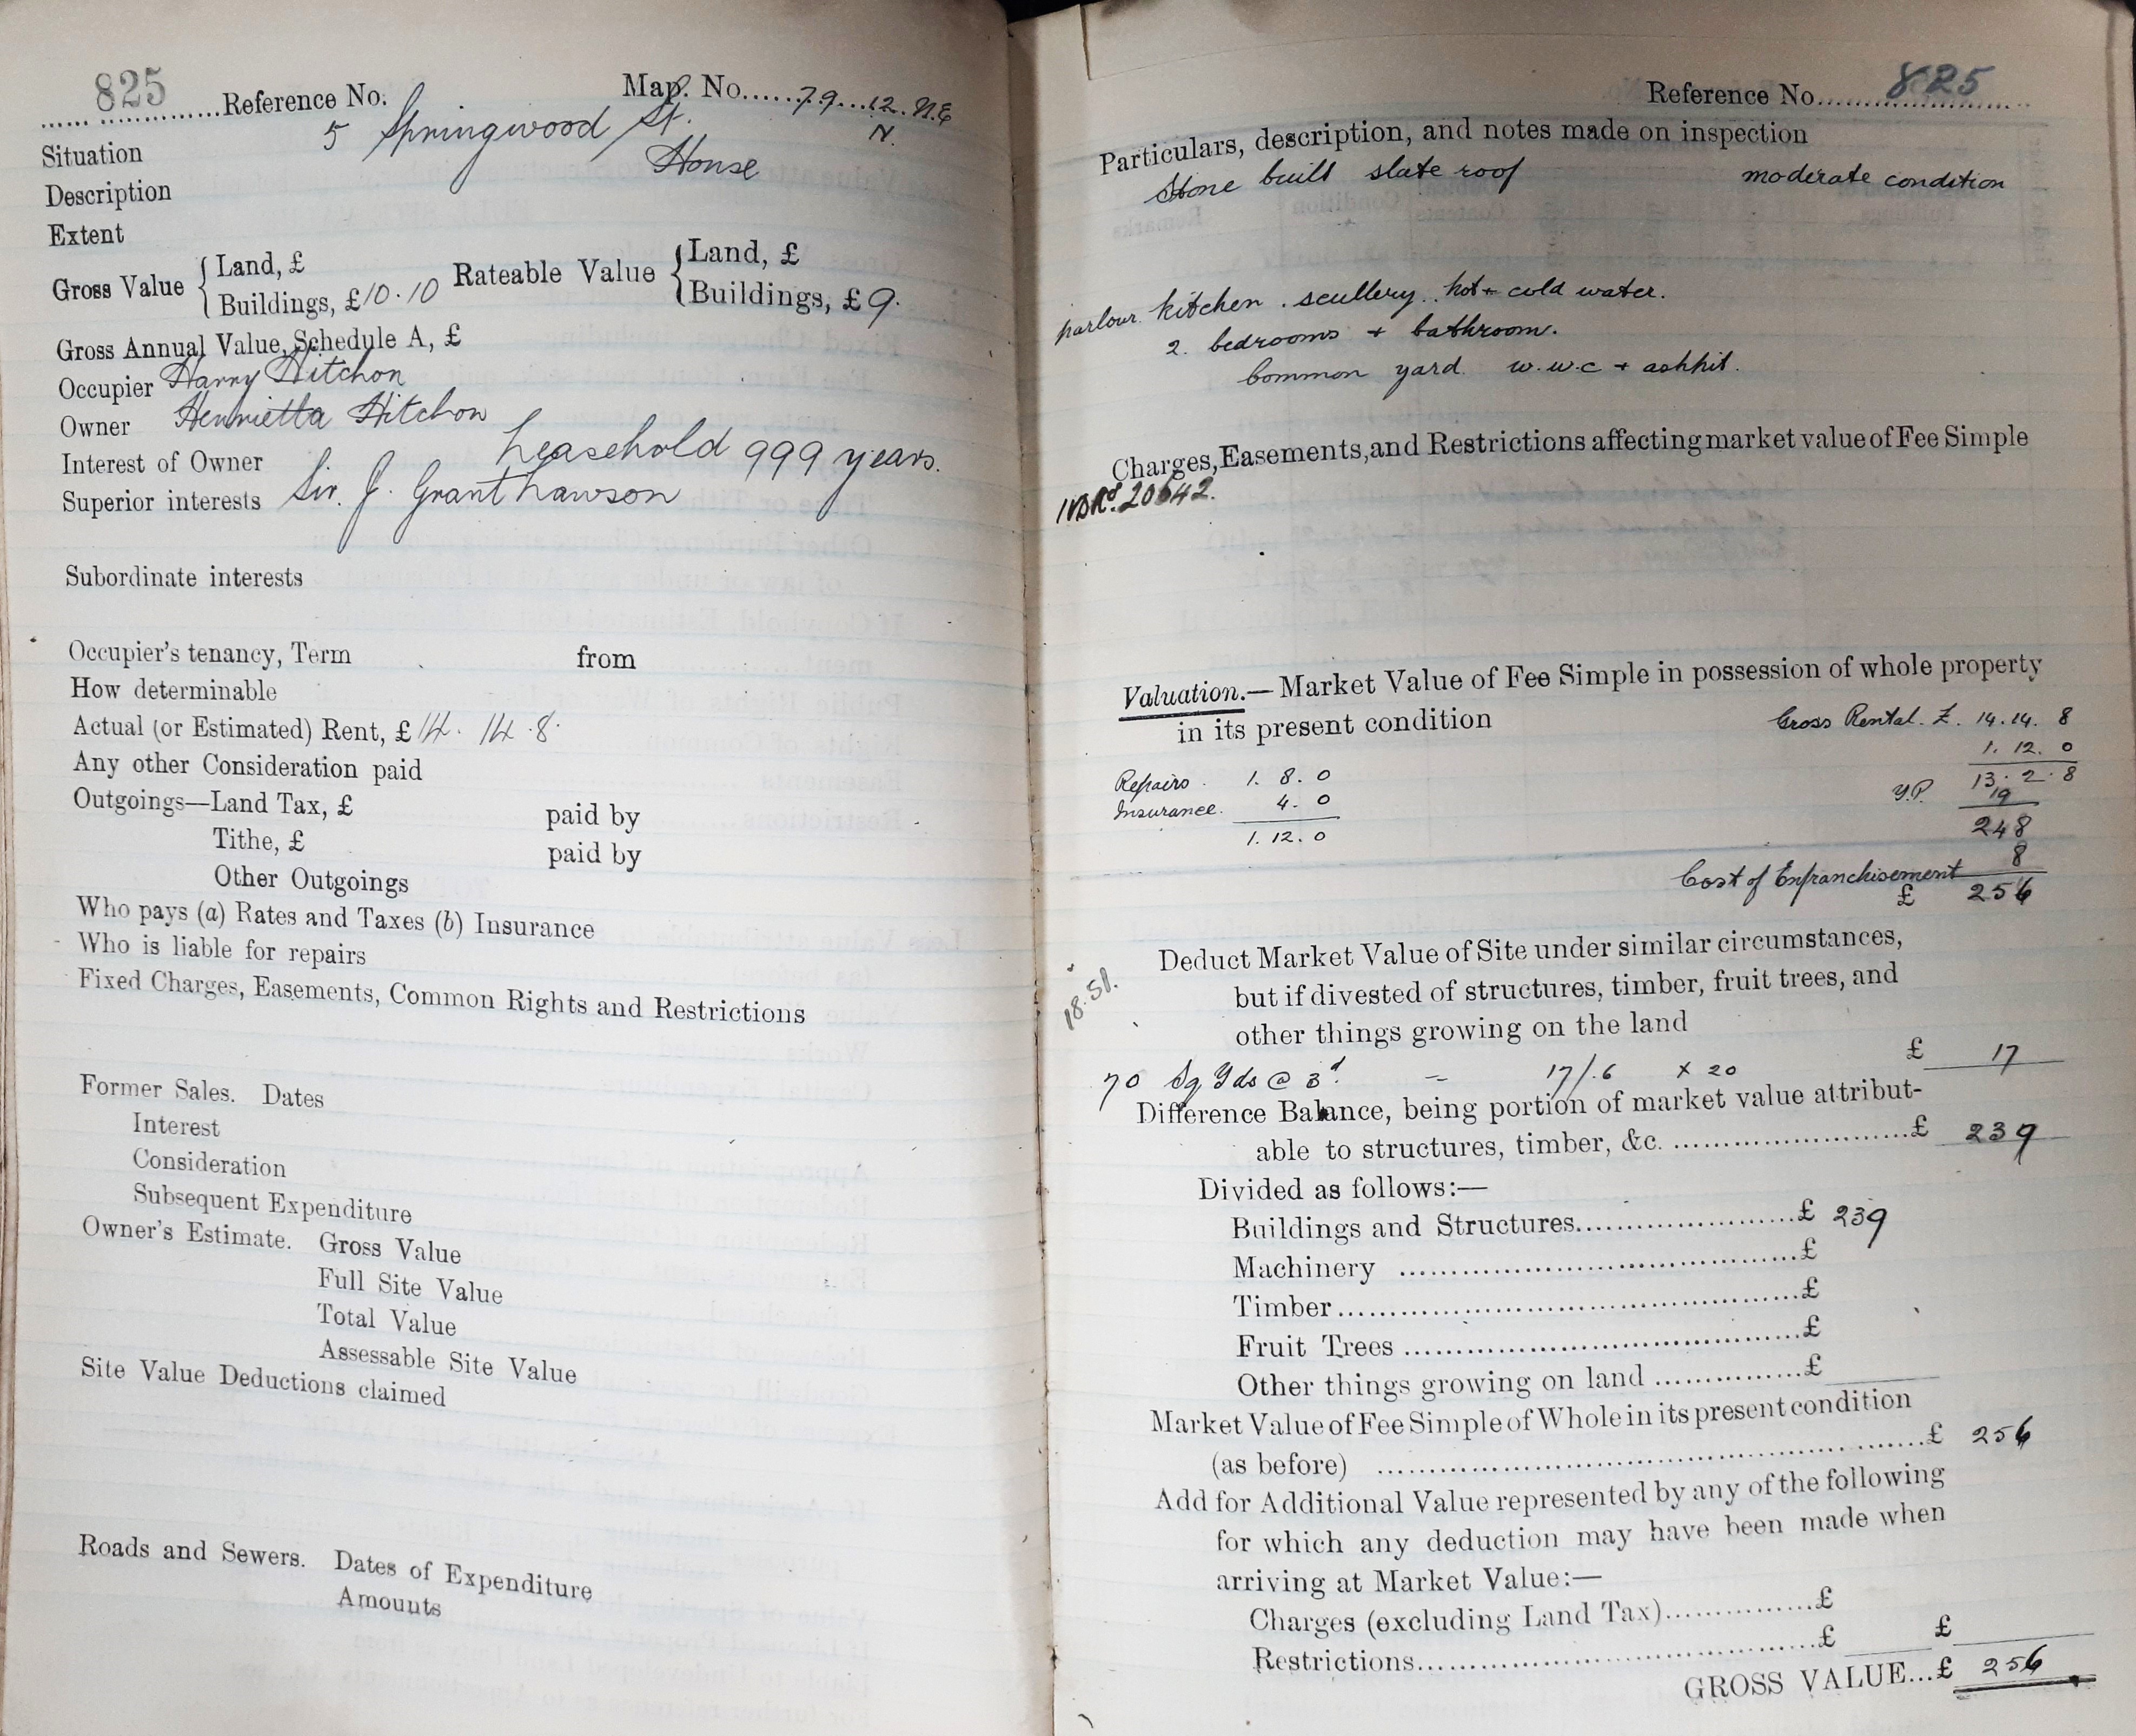 825
...... ...............Reference No. Map. No......79...12. N.E
N.
Situation 5 Springwood St.
Description House
Extent
Gross Value { Land, £ Rateable Value { Land, £
Buildings, £10.10 Buildings, £9.
Gross Annual Value, Schedule A, £
Occupier Harry Hitchon
Owner Henrietta Hitchon
Interest of Owner Leasehold 999 years.
Superior interests Sir. J. Grant Lawson
Subordinate interests
Occupier's tenancy, Term from
How determinable
Actual (or Estimated) Rent, £14. 14.8.
Any other Consideration paid
Outgoings—Land Tax, £ paid by
Tithe, £ paid by
Other Outgoings
Who pays (a) Rates and Taxes (b) Insurance
Who is liable for repairs
Fixed Charges, Easements, Common Rights and Restrictions
Former Sales. Dates
Interest
Consideration
Subsequent Expenditure
Owner's Estimate. Gross Value
Full Site Value
Total Value
Assessable Site Value
Site Value Deductions claimed
Roads and Sewers. Dates of Expenditure
Amounts
Reference No........................ 825
Particulars, description, and notes made on inspection
Stone built slate roof moderate condition
parlour. kitchen . scullery. hot + cold water.
2. bedrooms + bathroom.
Common yard. w.w.c + ashpit.
Charges, Easements, and Restrictions affecting market value of Fee Simple
20642.
Valuation.— Market Value of Fee Simple in possession of whole property
in its present condition Gross Rental. £. 14.14. 8
1. 12. 0
Repairs . 1. 8. 0 13. 2. 8
Insurance. 4. 0 Y.P. 19
1. 12. 0 248
8
Cost of Enfranchisement
£ 256
Deduct Market Value of Site under similar circumstances,
but if divested of structures, timber, fruit trees, and
other things growing on the land
18.51.
£ 17
70 Sq Yds @ 3d. - 17/.6 x 20
Difference Balance, being portion of market value attribut-
able to structures, timber, &c. ...........................£ 239
Divided as follows:—
Buildings and Structures.........................£ 239
Machinery ...............................................£
Timber......................................................£
Fruit Trees ...............................................£
Other things growing on land ................£
Market Value of Fee Simple of Whole in its present condition
(as before) ............................................................£ 256
Add for Additional Value represented by any of the following
for which any deduction may have been made when
arriving at Market Value:—
Charges (excluding Land Tax)................£
Restrictions..............................................£ £
GROSS VALUE...£ 256